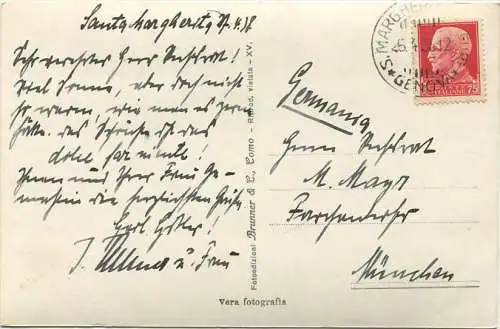 Santa Margherita 27.4.38
Sehr verehrter Herr Sechlrat!
Viel Sonne, aber doch nicht
so warm, wie man es gern
hätte. Das Schönste ist das
dolce far niente!
Ihnen und Ihrer Frau Ge-
mahlin die herzlichsten Grüße
u. Frau
Fotoedizioni Brunner & C., Como - Riprod. vietata - XV.
Vera fotografia
S. MARGHERITA
GENOVA
75
Germania
Herrn
M. Mayr
München